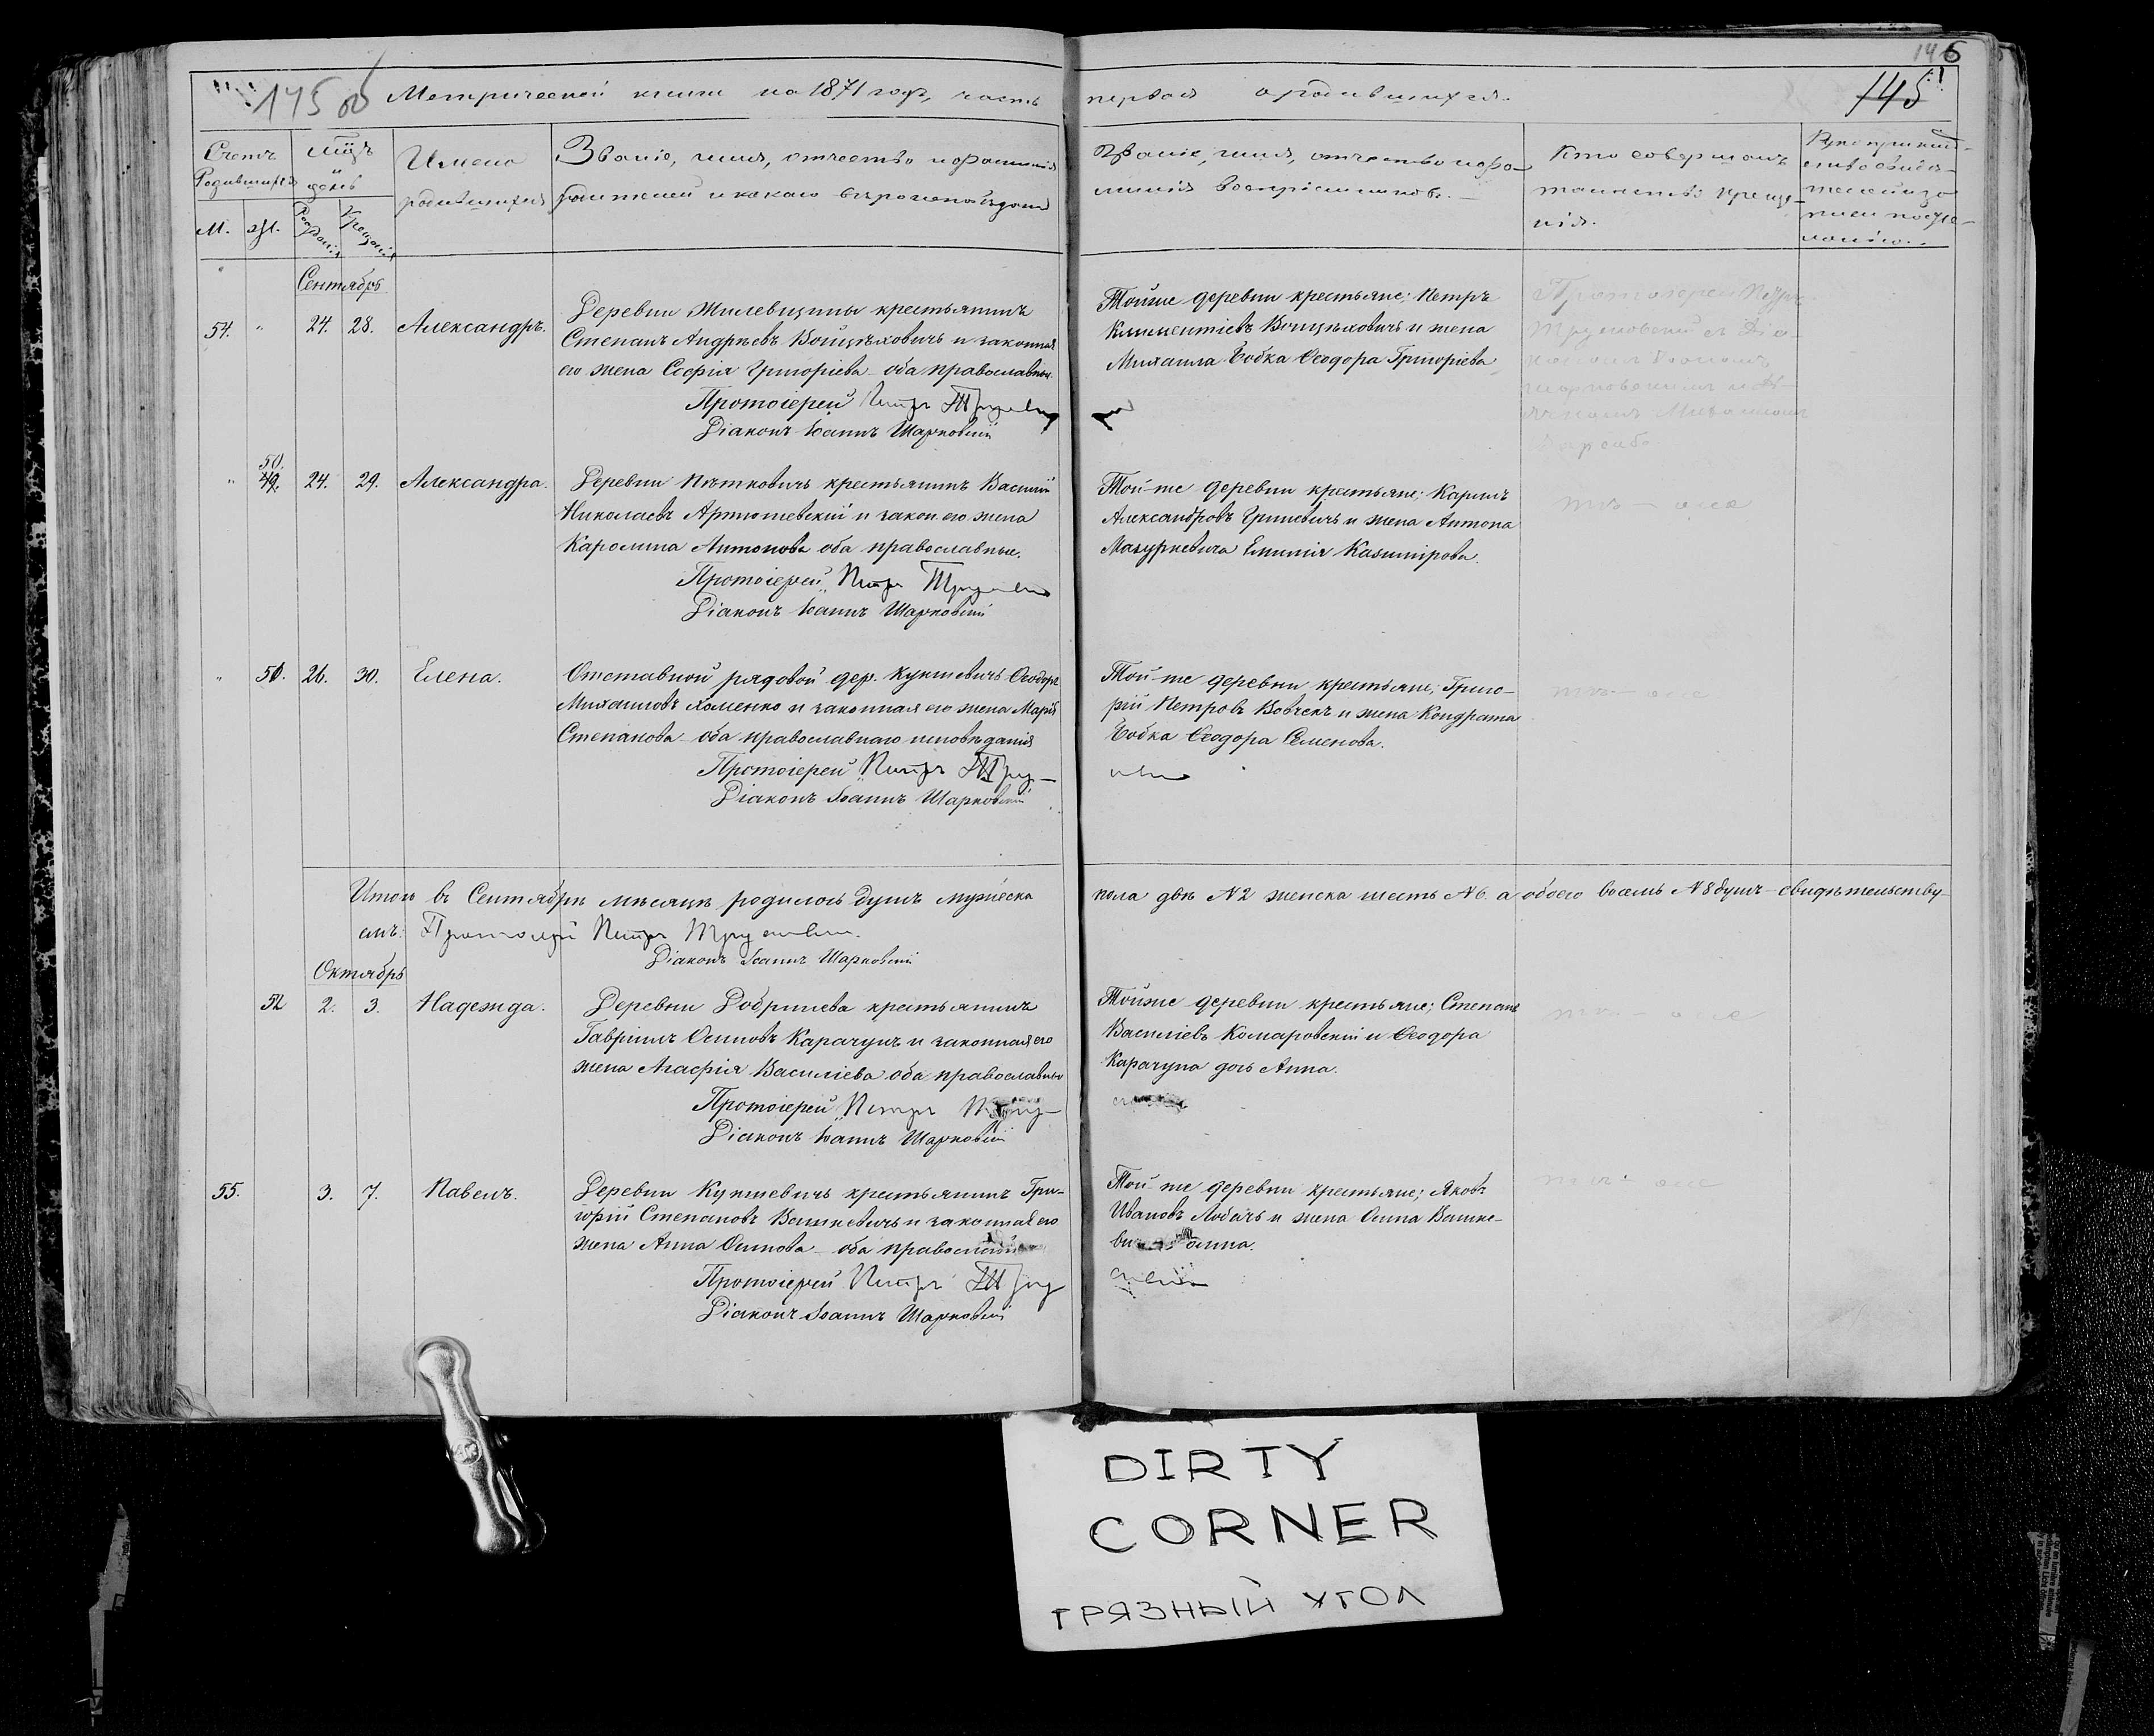 146
145 об Метрической книги на 1871 годъ, часть первая о родившихся.
145
Счетъ Родившихся
М. Ж.
мцъ и день
Рожденія
Крещенія
Имена
родившихся
Званіе, имя, отчество и фамилія
родителей и какаго вѣроисповѣданія
Званіе, имя, отчество и фа-
милія воспріемниковъ.
Кто совершалъ
таинство креще-
нія.
Рукоприклад-
ство свидѣ-
телей
Сентябрь
54. " 24. 28. Александръ.
Деревни Милевщины крестьянинъ
Степанъ Андреевъ Войцѣховичъ и законная
его жена Софія Григоріева оба православные.
Протоіерей Петръ
Діаконъ Іоаннъ Шарковскій
Тойже деревни крестьяне; Петръ
Климентіевъ Войцѣховичъ и жена
Михаила Бобка Ѳеодора Григоріева
Протоіерей Петръ
" 50. 49. 24. 29. Александра.
Деревни Пѣтковичъ крестьянинъ Василій
Николаевъ Артюшевскій и закон. его жена
Каролина Антонова оба православные.
Протоіерей Петръ
Діаконъ Іоаннъ Шарковскій
Той-же деревни крестьяне; Карлъ
Александровъ Гриневичъ и жена Антона
Мазуркевича Емилія Казимірова.
тѣ-же
" 51. 26. 30. Елена.
Отставной рядовой дер. Кунцевичъ Ѳеодоръ
Михаиловъ Хоменко и законная его жена Марія
Степанова оба православнаго исповѣданія
Протоіерей Петръ
Діаконъ Іоаннъ Шарковскій
Той-же деревни крестьяне; Григо-
рій Петровъ Вовчекъ и жена Кондрата
Бобка Ѳеодора Семенова.
тѣ-же
Итого въ Сентябрѣ мѣсяцѣ родилось душъ мужеска пола двѣ №2 женска шесть №6. а обоего восемь №8 душъ свидѣтельству-
емъ: Протоіерей Петръ
Діаконъ Іоаннъ Шарковскій
Октябрь
52 2. 3. Надежда.
Деревни Добринева крестьянинъ
Гавріилъ Осиповъ Карачунъ и законная его
жена Агафія Василіева оба православные
Протоіерей Петръ
Діаконъ Іоаннъ Шарковскій
Тойже деревни крестьяне; Степанъ
Василіевъ Комаровскій и Ѳеодора
Карачуна дочь Анна.
тѣ-же
55. 3. 7. Павелъ.
Деревни Кунцевичъ крестьянинъ Гри-
горій Степановъ Вашкевичъ и законная его
жена Анна Осипова оба
Протоіерей Петръ
Діаконъ Іоаннъ Шарковскій
Той же деревни крестьяне; Яковъ
Ивановъ Лобачъ и жена Осипа Вашке-
тѣ-же
DIRTY
CORNER
ГРЯЗНЫЙ УГОЛ